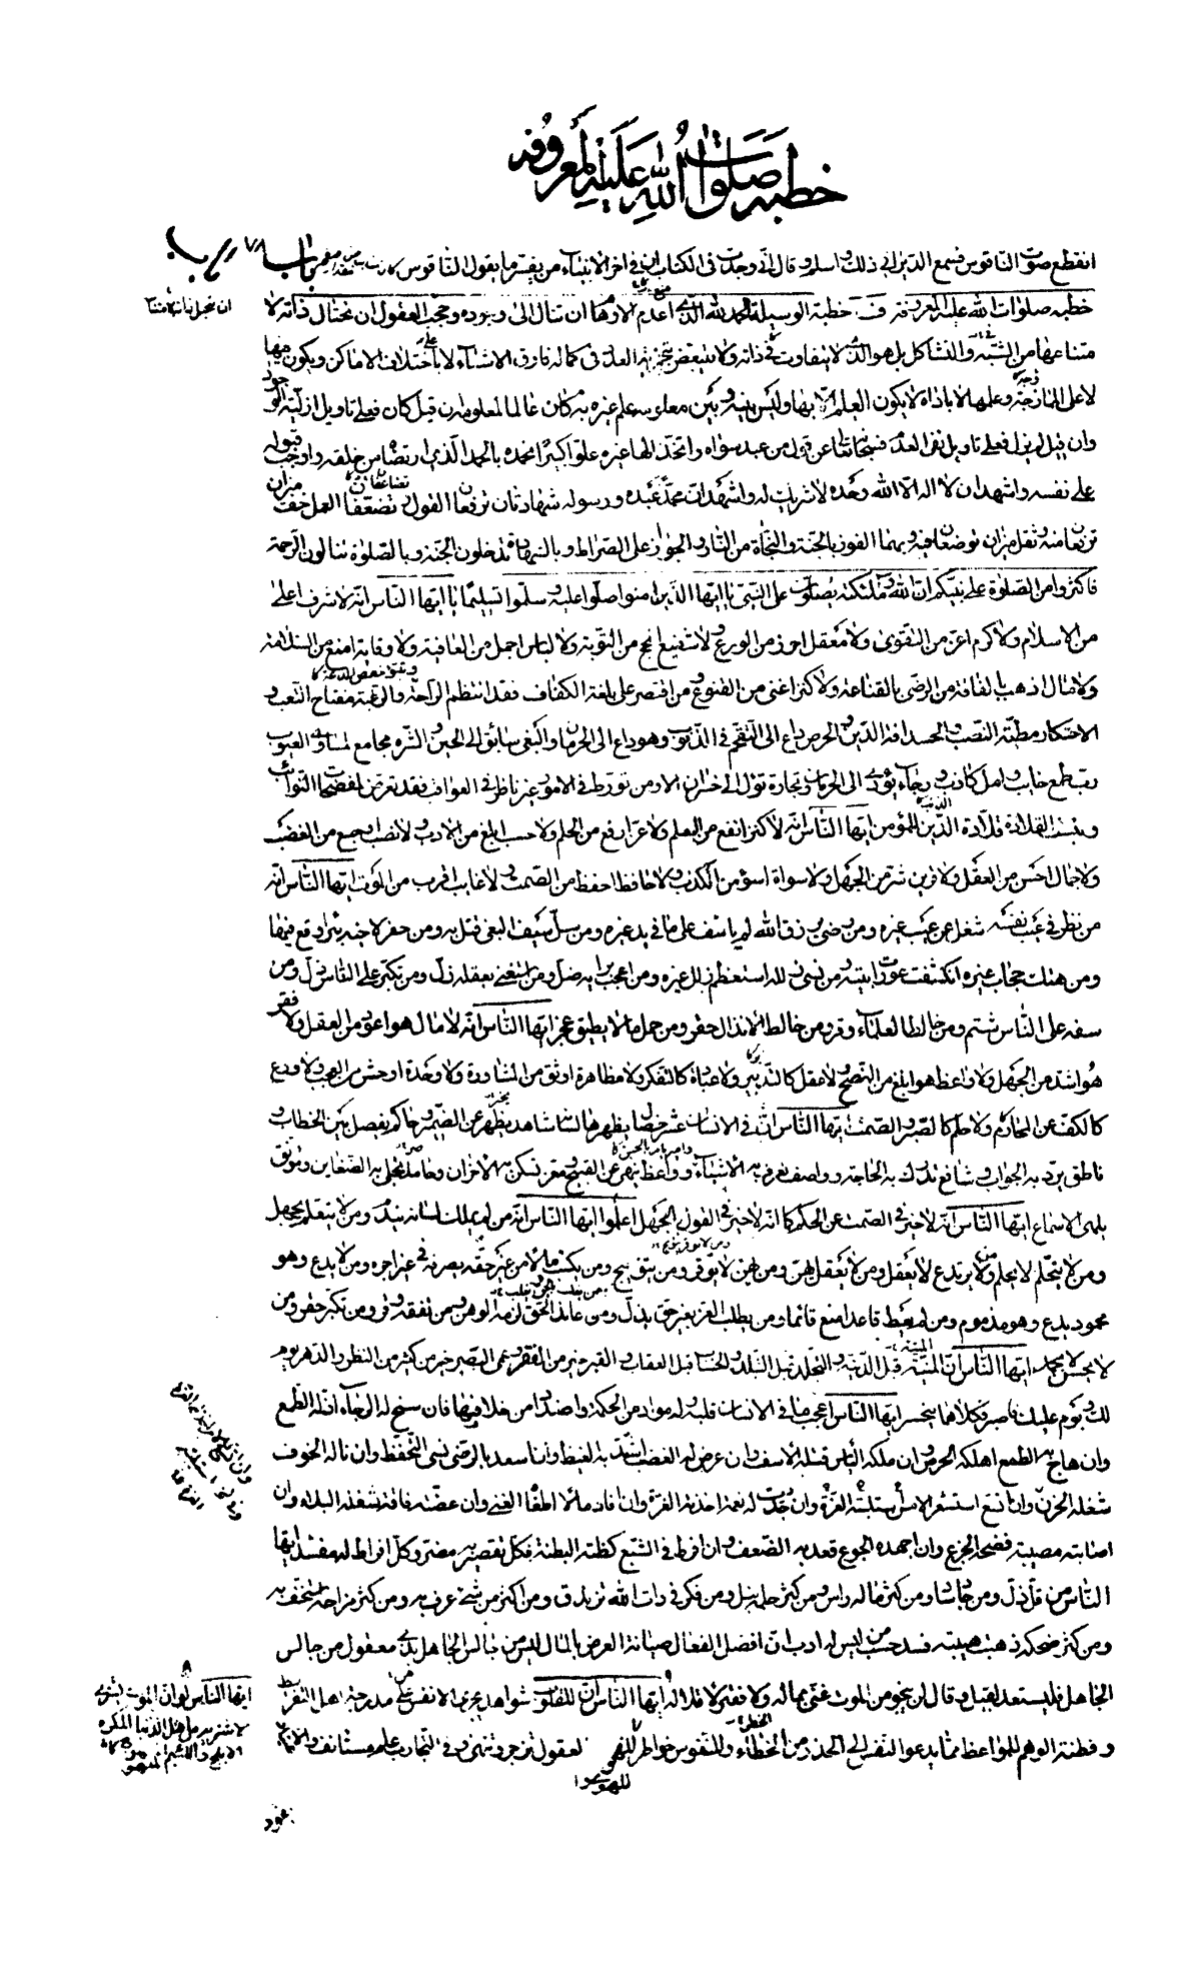 خطبه صلوات الله عليه المعروفه
انقطع صوت الناقوس فسمع الديراني ذلك واسلم وقال انى وجدت فى الكتاب ان فى اخر الانبياء من يفسر ما يقول الناقوس باب ٧٨
خطبه صلوات الله عليه المعروفة ف خطبة الوسيلة الحمد لله الذى اعدم الاوهام ان تنال الى وجوده وحجب العقول ان تختال ذاته لا
متناعها من الشبه والتشاكل بل هو الذى لا يتفاوت فى ذاته ولا يتبعض بتجزية العدد فى كماله فارق الاشياء لا باختلاف الاماكن ويكون فيها
لا على الممازجة وعلمها لا باداة لا يكون العلم الا بها وليس بينه وبين معلومه علم غيره به كان عالما لمعلومه ان قيل كان فعلى تاويل ازلية الوجود
وان قيل لم يزل فعلى تاويل نفى العدم فسبحانه وتعالى عن قول من عبد سواه واتخذ الها غيره علوا كبيرا نحمده بالحمد الذى ارتضاه من خلقه واوجب قبوله
على نفسه واشهد ان لا اله الا الله وحده لا شريك له واشهد ان محمدا عبده ورسوله شهادتان ترفعان القول وتضعفان العمل خف ميزان
ترفعان منه وثقل ميزان توضعان فيه وبهما الفوز بالجنة والنجاة من النار والجواز على الصراط وبالشهادة تدخلون الجنة وبالصلوة تنالون الرحمة
فاكثروا من الصلوة على نبيكم ان الله وملئكته يصلون على النبى يا ايها الذين امنوا صلوا عليه وسلموا تسليما يا ايها الناس انه لا شرف اعلى
من الاسلام ولا كرم اعز من التقوى ولا معقل احرز من الورع ولا شفيع انجح من التوبة ولا لباس اجمل من العافية ولا وقاية امنع من السلامة
ولا مال اذهب بالفاقة من الرضى بالقناعة ولا كنز اغنى من القنوع ومن اقتصر على بلغة الكفاف فقد انتظم الراحة والرغبة مفتاح التعب و
الاحتكار مطية النصب والحسد افة الدين والحرص داع الى التقحم فى الذنوب وهو داع الى الحرمان والبغى سايق الى الحين والشره جامع لمساوى العيوب
رب طمع خايب وامل كاذب ورجاء يؤدى الى الحرمان وتجارة تؤل الى خسران الا ومن تورط فى الامور غير ناظر فى العواقب فقد تعرض لمفضحات النوائب
وبئست القلادة قلادة الدين للمؤمن ايها الناس انه لا كنز انفع من العلم ولا عز ارفع من الحلم ولا حسب ابلغ من الادب ولا نصب اوجع من الغضب
ولا جمال احسن من العقل ولا قرين شر من الجهل ولا سواة اسوء من الكذب ولا حافظ احفظ من الصمت ولا غايب اقرب من الموت ايها الناس انه
من نظر فى عيب نفسه شغل عن عيب غيره ومن رضى برزق الله لم ياسف على ما فى يد غيره ومن سل سيف البغى قتل به ومن حفر لاخيه بئرا وقع فيها
ومن هتك حجاب غيره انكشفت عورات بيته ومن نسى زلله استعظم زلل غيره ومن اعجب برايه ضل ومن استغنى بعقله زل ومن تكبر على الناس ذل ومن
سفه على الناس شتم ومن خالط العلماء وقر ومن خالط الانذال حقر ومن حمل ما لا يطيق عجز ايها الناس انه لا مال هو اعود من العقل ولا فقر
هو اشد من الجهل ولا واعظ هو ابلغ من النصح ولا عقل كالتدبير ولا عبادة كالتفكر ولا مظاهرة اوثق من المشاورة ولا وحدة اوحش من العجب ولا ورع
كالكف عن المحارم ولا حلم كالصبر والصمت ايها الناس ان فى الانسان عشر خصال يظهرها لسانه شاهد يخبر عن الضمير وحاكم يفصل بين الخطاب و
ناطق يرد به الجواب وشافع تدرك به الحاجة وواصف تعرف به الاشياء وواعظ ينهى عن القبيح ومعز تسكن به الاحزان وحامد تجلى به الضغاين ومونق
يلهى الاسماع ايها الناس انه لا خير فى الصمت عن الحكم كما انه لا خير فى القول بالجهل اعلموا ايها الناس انه من لم يملك لسانه يندم ومن لا يتعلم يجهل
ومن لا يتحلم لا يحلم ومن لا يرتدع لا يعقل ومن لا يعقل يهن ومن يهن لا يوقر ومن يتق ينج ومن يكسب مالا من غير حقه يصرفه فى غير اجره ومن لا يدع وهو
محمود يدع وهو مذموم ومن لم يعط قاعدا منع قائما ومن يطلب العز بغير حق يذل ومن عاند الحق لزمه الوهن ومن تفقه وقر ومن تكبر حقر ومن
لا يحسن لا يحمد ايها الناس ان المنية قبل الدنية والتجلد قبل التبلد والحساب قبل العقاب والقبر خير من الفقر وعمى البصر خير من كثير من النظر والدهر يوم
لك ويوم عليك فاصبر فبكلاهما تختبر ايها الناس اعجب ما فى الانسان قلبه وله مواد من الحكمة واضداد من خلافها فان سنح له الرجاء اذله الطمع
وان هاج به الطمع اهلكه الحرص وان ملكه الياس قتله الاسف وان عرض له الغضب اشتد به الغيظ وان اسعد بالرضى نسى التحفظ وان ناله الخوف
شغله الحزن وان اتسع استشعر الامن استلبته الغرة وان جددت له نعمة اخذته العزة وان افاد مالا اطغاه الغنى وان عضته فاقة شغله البلاء وان
اصابته مصيبة فضحه الجزع وان اجهده الجوع قعد به الضعف وان افرط فى الشبع كظته البطنة فكل تقصير به مضر وكل افراط له مفسد ايها
الناس من قل ذل ومن جاد ساد ومن كثر ماله راس ومن كثر حلمه نبل ومن فكر فى ذات الله تزندق ومن اكثر من شئ عرف به ومن كثر مزاحه استخف به
ومن كثر ضحكه ذهبت هيبته فسد حسب من ليس له ادب ان افضل الفعال صيانة العرض بالمال ليس من جالس الجاهل بذى معقول من جالس
الجاهل فليستعد لقيل وقال لن ينجو من الموت غنى بماله ولا فقير لاقلاله ايها الناس ان للقلوب شواهد تجرى الانفس عن مدرجة اهل التفريط
وفطنة الفهم للمواعظ مما يدعو النفس الى الحذر من الخطاء وللنفوس خواطر للهوى العقول تزجر وتنهى وفى التجارب علم مستانف والاعتبار
ايها الناس لو ان الموت يشترى
لاشتراه من اهل الدنيا الكريم
الابلج واللئيم الملهوج
للهوى
يقود